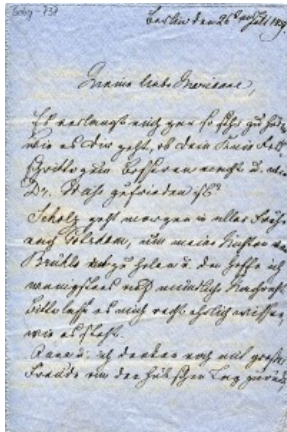 Berlin den 26ten Juli 1889.
Meine liebe Marianne,
Es verlangt mich gar so sehr zu hören
wie es Dir geht, ob Dein Knie Fort-
schritte zum Besseren macht u. wie
Dr. zufrieden ist?
Scholz geht morgen in aller Frühe
nach Potsdam, um meine
Brühl zu holen u. da hoffe ich
wenigstens mündliche Nachricht
Bitte lasse es mich recht ehrlich wissen,
wie es steht.
u. ich denken noch mit großer
Freude an den hübschen Tag zurück